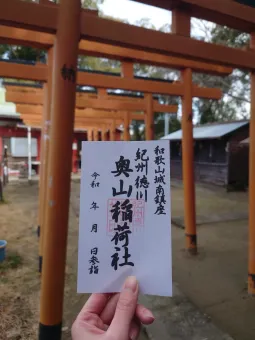 和歌山城南鎮座
紀州徳川
奥山稲荷社
令和　年　月　日参詣